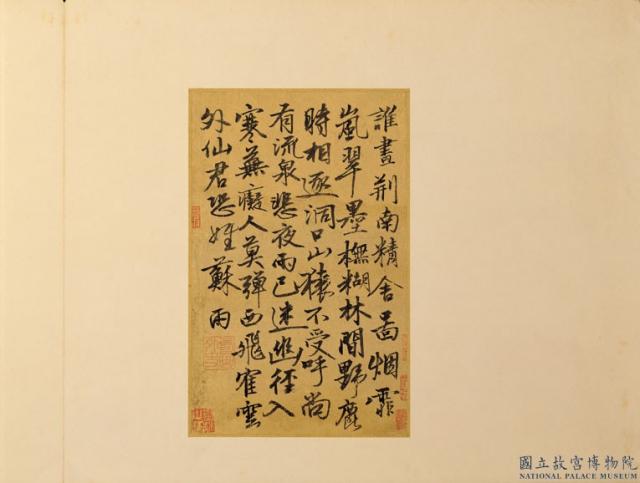 誰畫荆南精舍圖烟霏
嵐翠墨模糊林間野鹿
時相逐洞口山猿不受呼尚
有流泉悲夜雨已迷幽徑入
寒蕪癡人莫彈西飛隺雲
外仙君恐姓蘇 雨
國立故宮博物院
NATIONAL PALACE MUSEUM